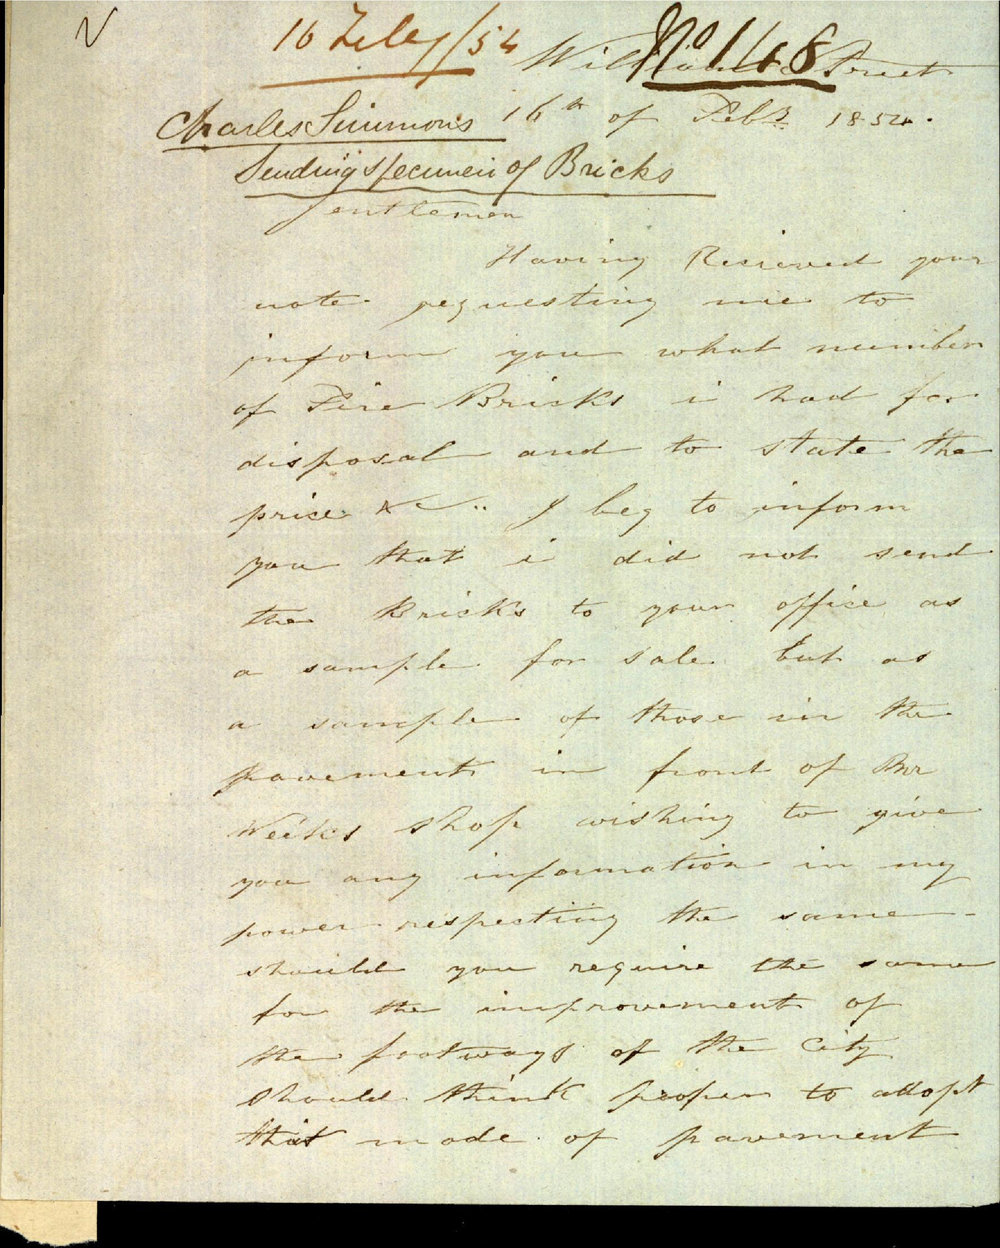 16 Feby/54
No 148
William Street
Charles Simmons 16th of Feby 1854.
Sending specimen of Bricks
Gentlemen
Having Recieved your
note requesting me to
inform you what number
of Fire Bricks i had for
disposal and to state the
price &c .. I beg to inform
you that i did not send
the Bricks to your office as
a sample for sale but as
a sample of those in the
pavement in front of Mr
Weeks shop wishing to give
you any information in my
power respecting the same
should you require the same
for the improvement of
the footways of the City
should think proper to addopt
that mode of pavement